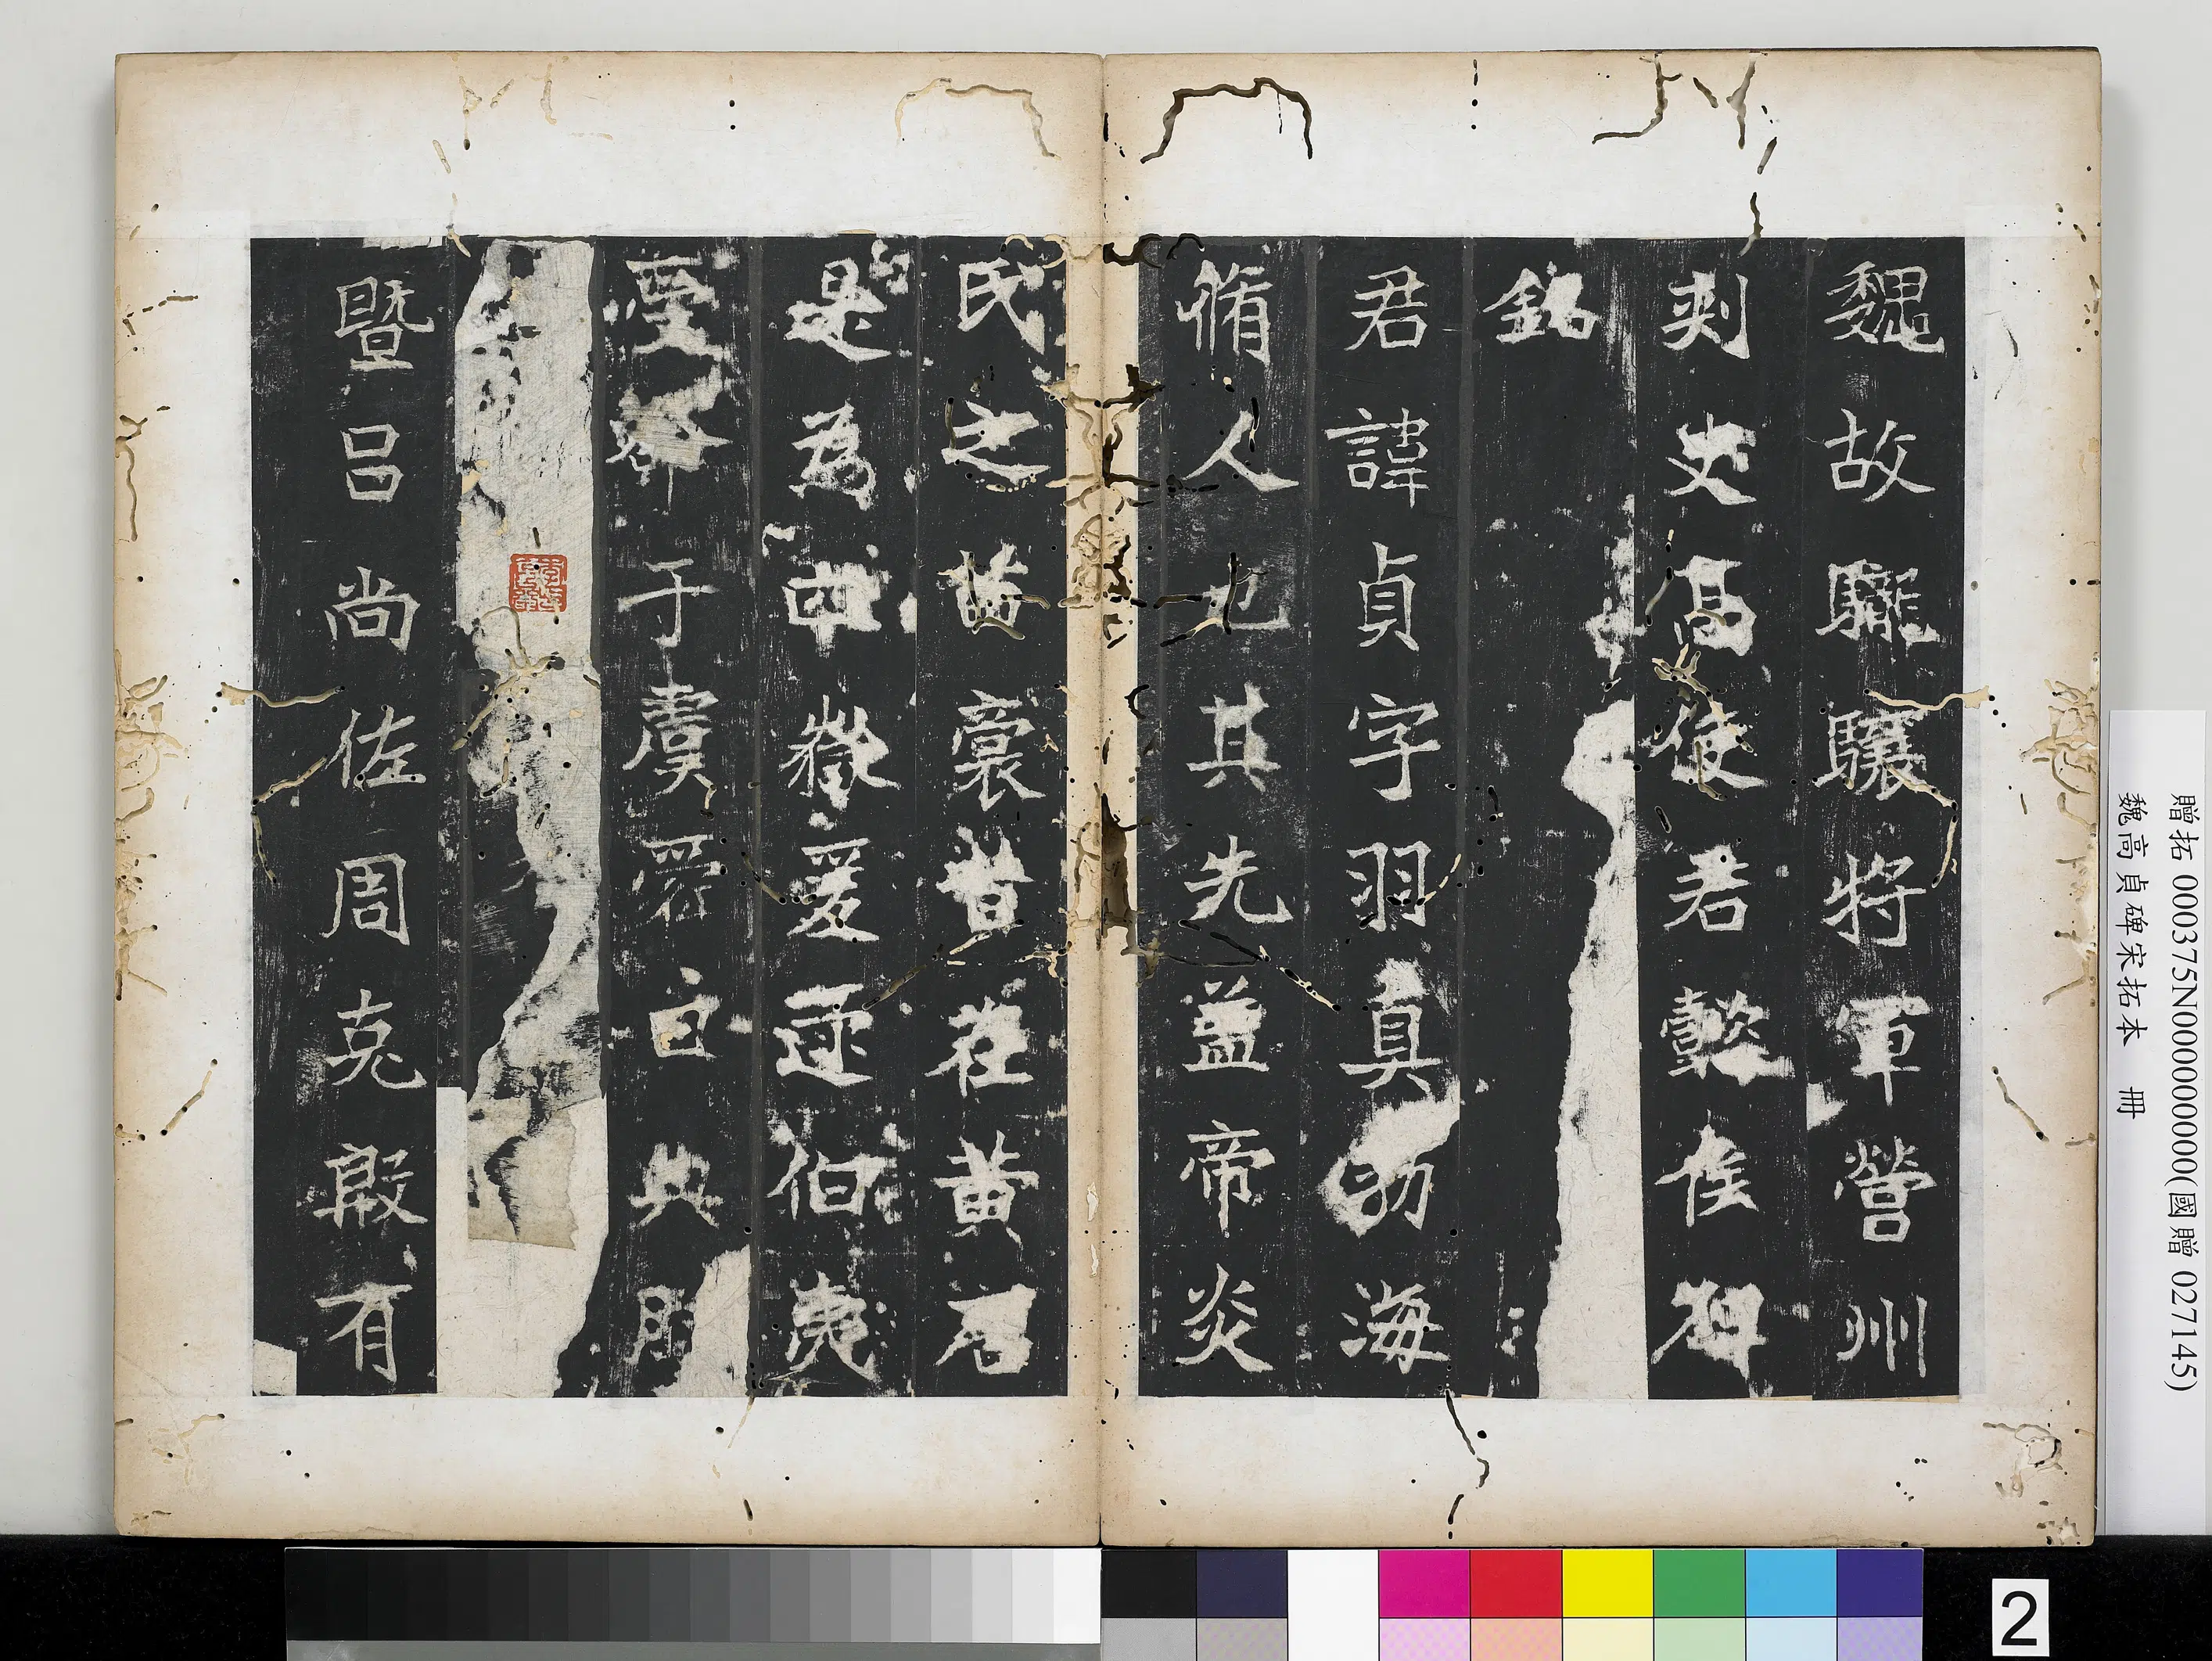 魏故䮾驤將軍營州
刾史高使君懿侯碑
銘
君諱貞字羽真勃海
脩人也其先盖帝炎
氏之苗裔昔在黄唐
是為四嶽爰逮伯夷
于虞典
暨呂尚佐周克殷有
贈拓 000375N000000000(國贈 027145)
魏高貞碑宋拓本 冊
2